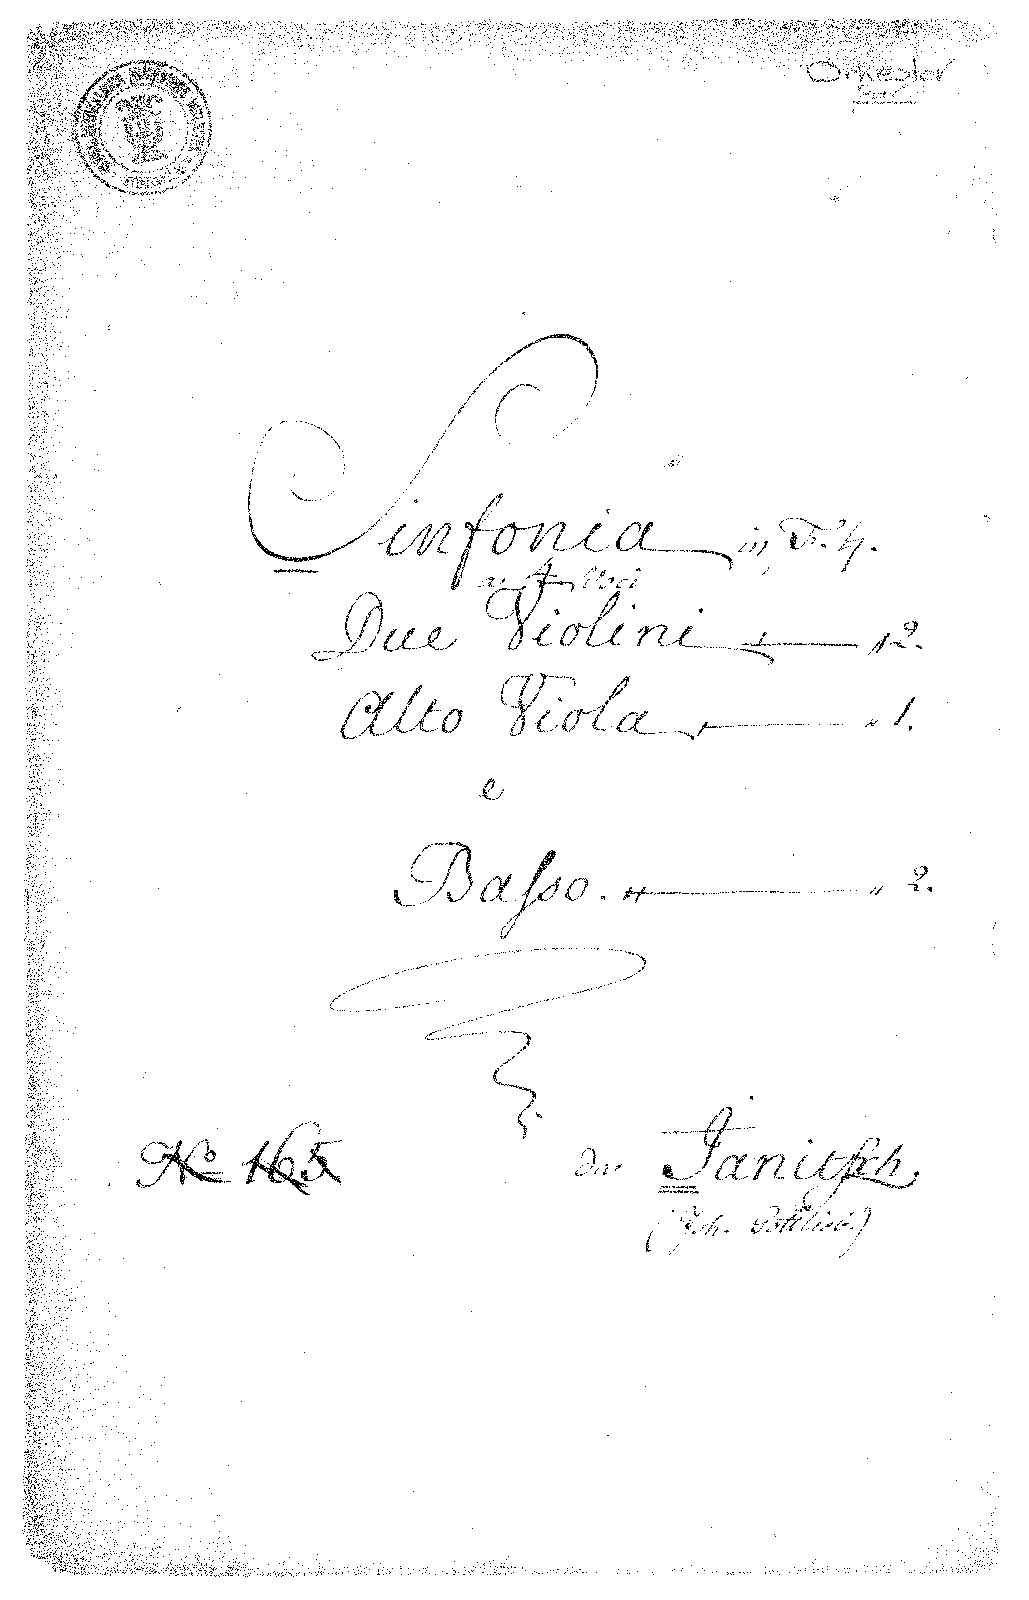 Orkester
Sinfonia in F. ♮.
a 4 Voci
Due Violini 2.
Alto Viola 1.
e
Basso. 2.
No 165
Dn Janitsch.
(Joh. Gottlieb.)